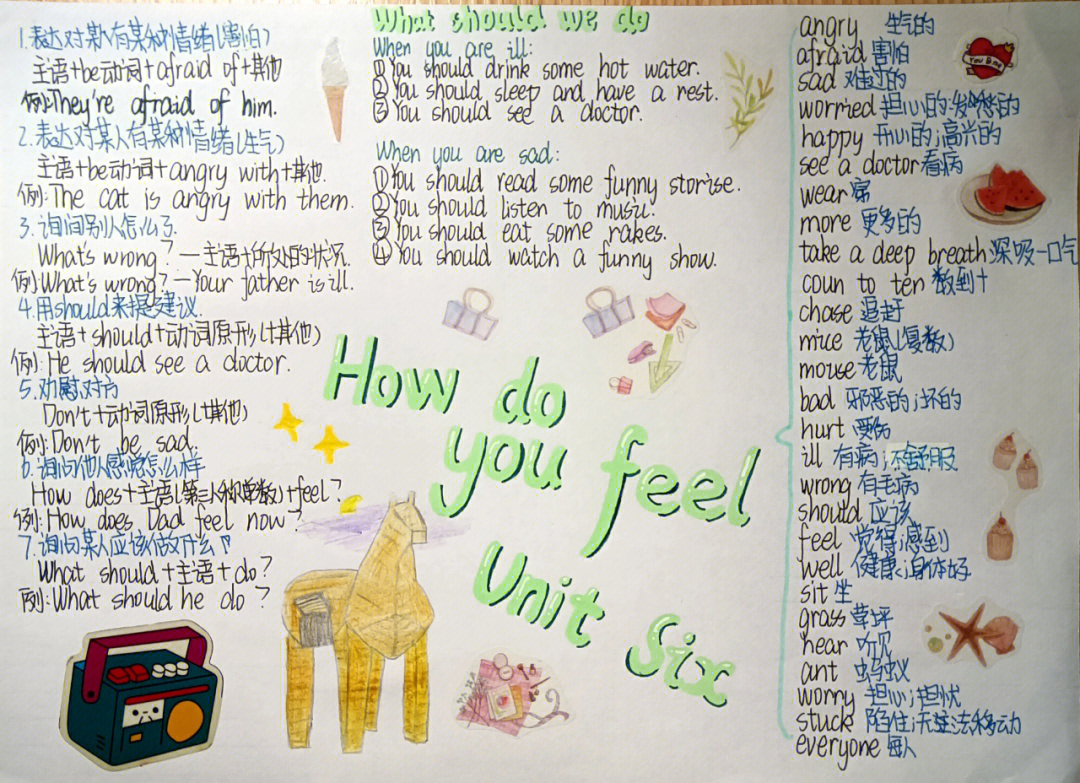 1.表达对某人有某种情绪(害怕)
主语+be动词+afraid of+其他
例:They're afraid of him.
2.表达对某人有某种情绪(生气)
主语+be动词+angry with+其他.
例:The cat is angry with them.
3.询问别人怎么了.
What's wrong? —主语+所处的状况.
例:What's wrong? —Your father is ill.
4.用should来提建议.
主语+should+动词原形(+其他)
例:He should see a doctor.
5.劝慰对方
Don't+动词原形(+其他)
例:Don't be sad.
6.询问他人感觉怎么样
How does+主语(第三人称单数)+feel?
例:How does Dad feel now?
7.询问某人应该做什么
What should+主语+do?
例:What should he do?
What should we do
When you are ill:
①You should drink some hot water.
②You should sleep and have a rest.
③You should see a doctor.
When you are sad:
①You should read some funny storise.
②You should listen to music.
③You should eat some rakes.
④You should watch a funny show.
How do
you feel
Unit Six
angry 生气的
afraid 害怕
sad 难过的
worried 担心的;发愁的
happy 开心的;高兴的
see a doctor 看病
wear 穿
more 更多的
take a deep breath 深吸一口气
coun to ten 数到十
chase 追赶
mice 老鼠(复数)
mouse 老鼠
bad 邪恶的;坏的
hurt 受伤
ill 有病;不舒服
wrong 有毛病
should 应该
feel 觉得;感到
well 健康;身体好
sit 坐
grass 草坪
hear 听见
ant 蚂蚁
worry 担心;担忧
stuck 陷住;无法移动
everyone 每人